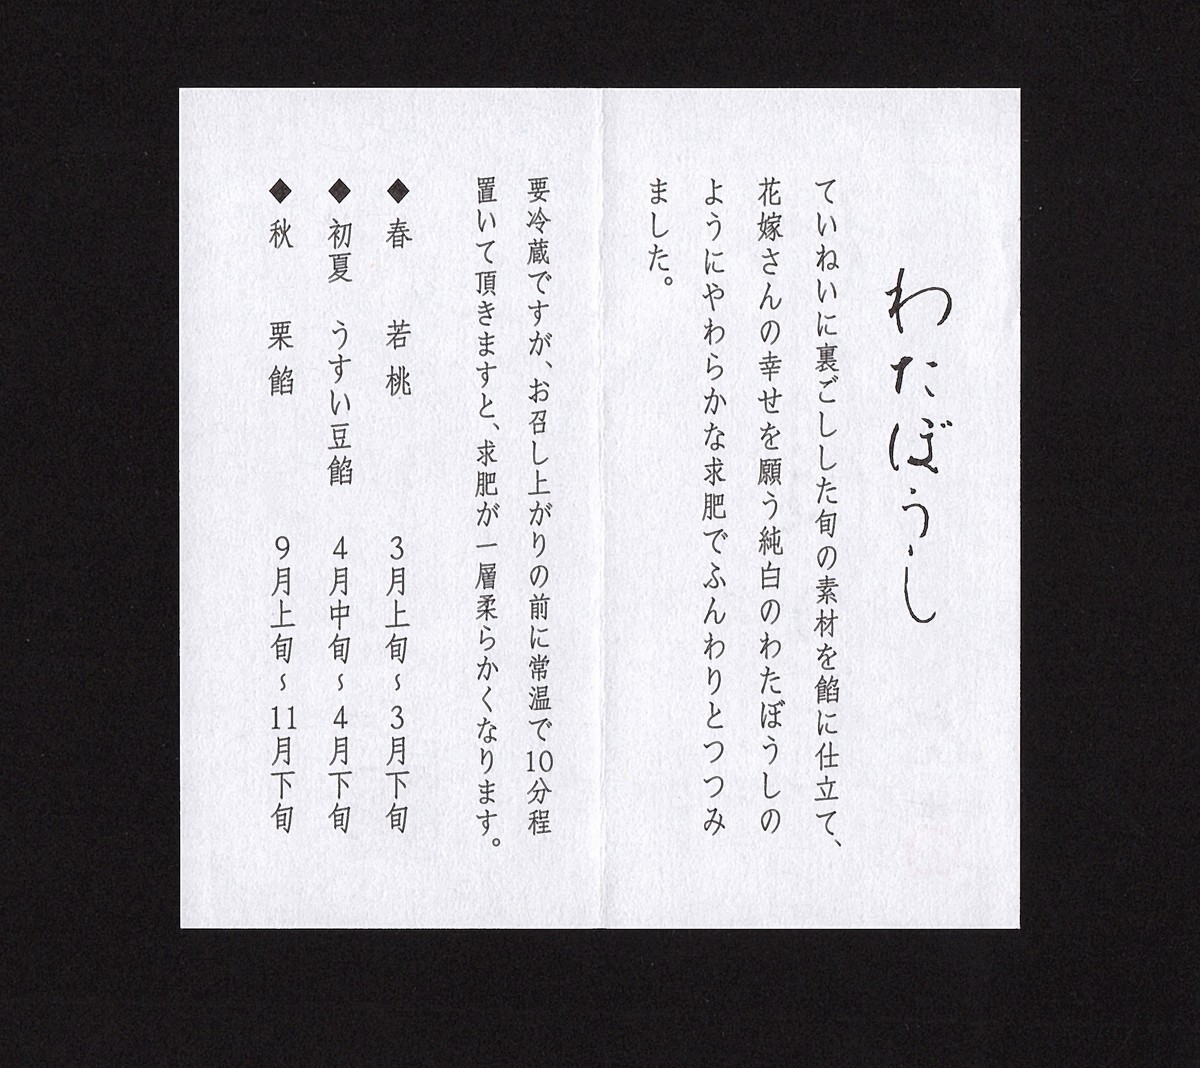 わたぼうし
ていねいに裏ごしした旬の素材を餡に仕立て、
花嫁さんの幸せを願う純白のわたぼうしの
ようにやわらかな求肥でふんわりとつつみ
ました。
要冷蔵ですが、お召し上がりの前に常温で10分程
置いて頂きますと、求肥が一層柔らかくなります。
◆ 春 若桃 3月上旬~3月下旬
◆ 初夏 うすい豆餡 4月中旬~4月下旬
◆ 秋 栗餡 9月上旬~11月下旬